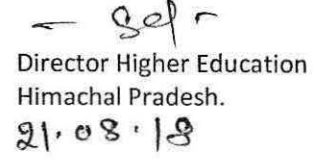 - Sd -
Director Higher Education
Himachal Pradesh.
21.08.18